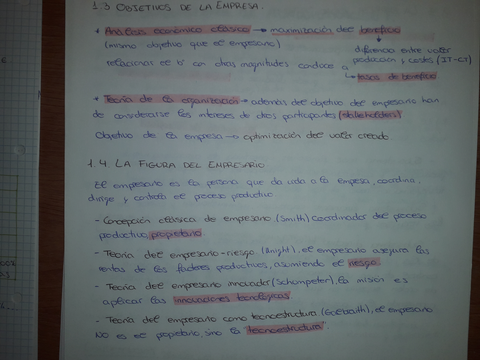 1.3 OBJETIVOS DE LA EMPRESA.
* Análisis económico clásico → maximización del beneficio
(mismo objetivo que el empresario)
diferencia entre valor
producción y costes (IT-CT)
relacionar el bº con otras magnitudes conduce a
↳ tasas de beneficio
* Teoría de la organización → además del objetivo del empresario han
de considerarse los intereses de otros participantes (stakeholders)
Objetivo de la empresa → optimización del valor creado
1.4 LA FIGURA DEL EMPRESARIO
El empresario es la persona que da vida a la empresa, coordina,
dirige y controla el proceso productivo
- Concepción clásica de empresario (Smith) coordinador del proceso
productivo, propietario
- Teoría del empresario-riesgo (Knight), el empresario asegura las
rentas de los factores productivos, asumiendo el riesgo.
- Teoría del empresario innovador (Schumpeter), la misión es
aplicar las innovaciones tecnológicas
- Teoría del empresario como tecnoestructura (Galbraith), el empresario
NO es el propietario, sino la "tecnoestructura".